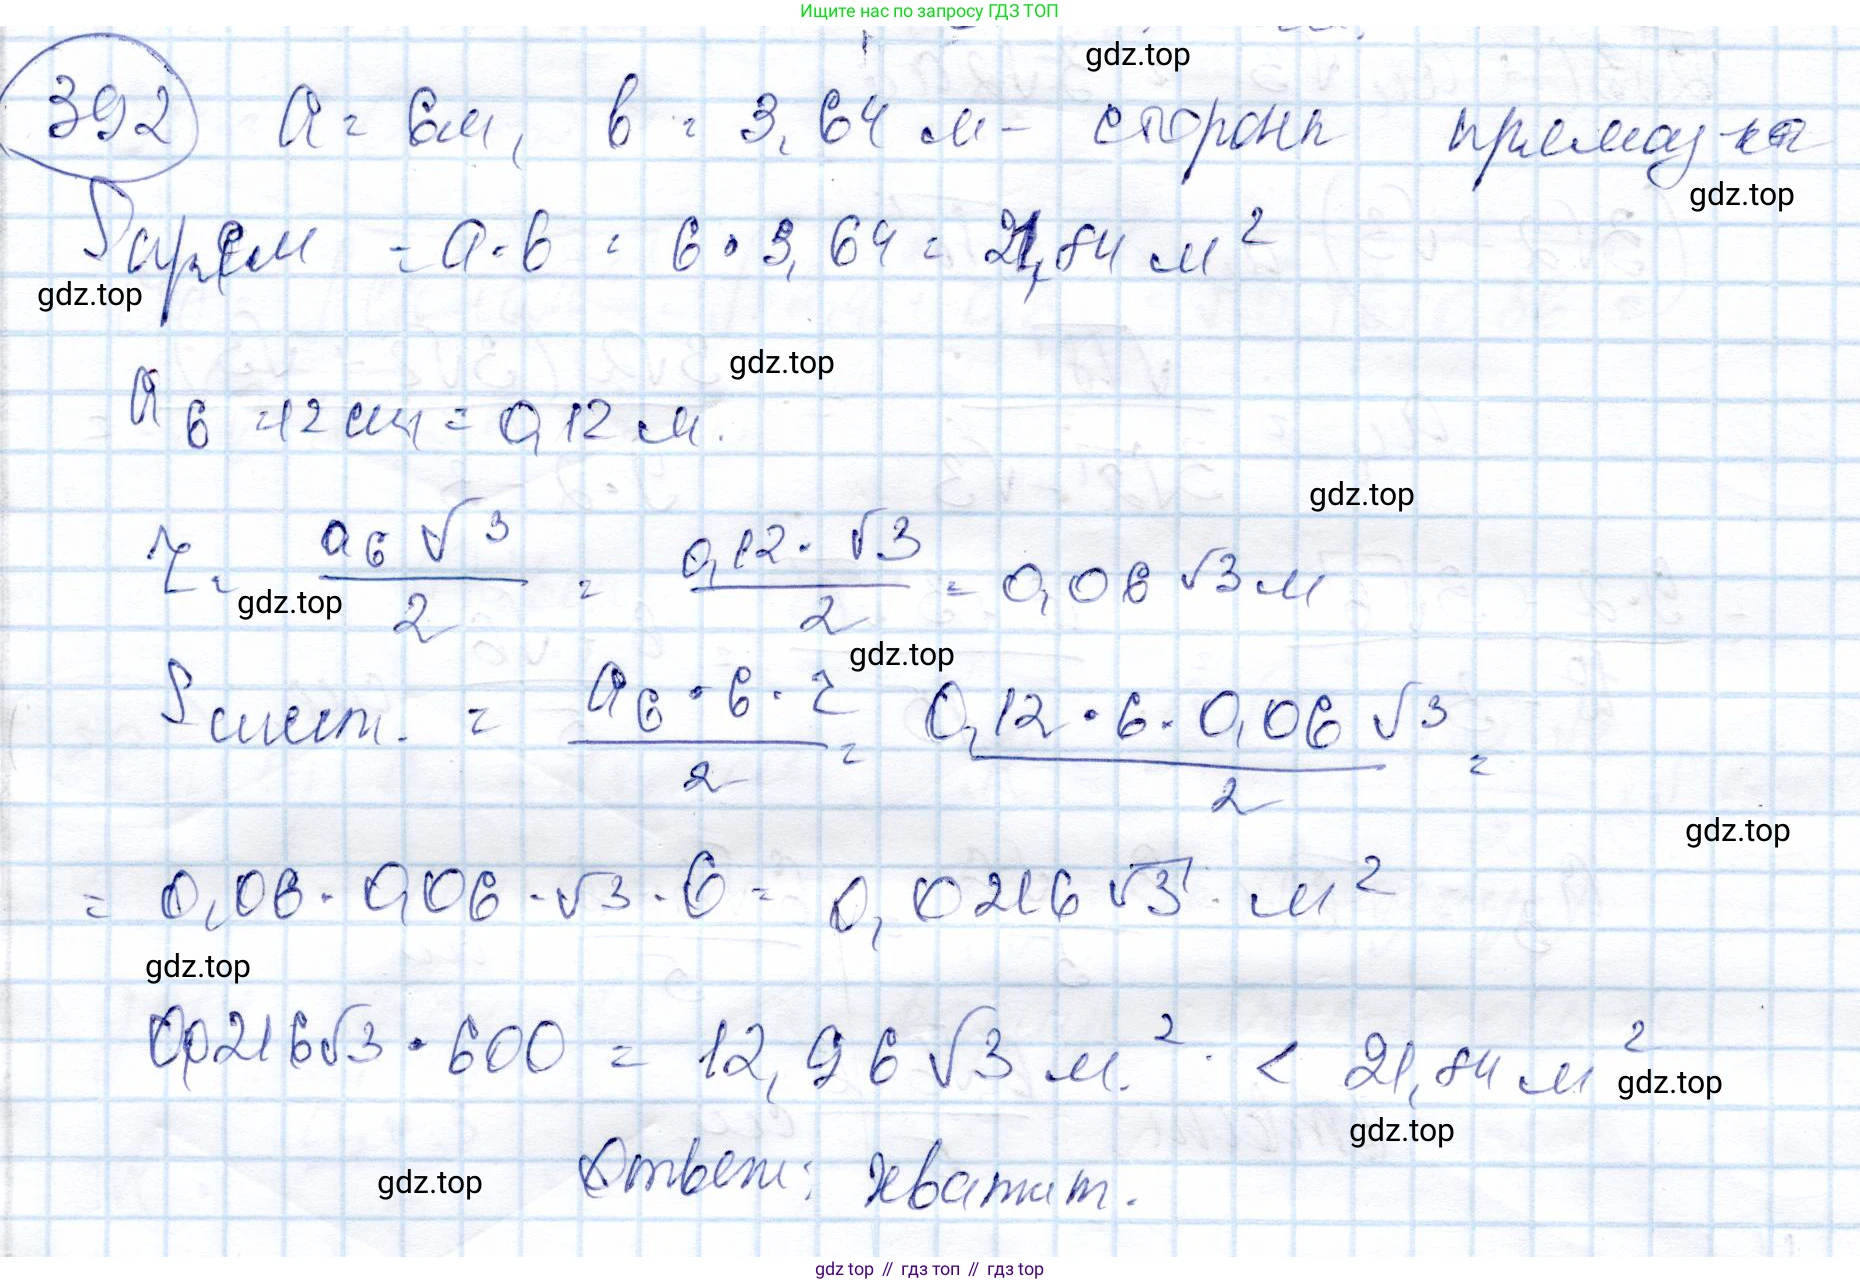 Ищите нас по запросу ГДЗ ТОП
gdz.top
392 a = 6м, b = 3,64 м - стороны прямоуг-ка
gdz.top
Sаркам = a·b = 6·3,64 = 21,84 м²
gdz.top
gdz.top
a₆ = 12 см = 0,12 м.
gdz.top
r = a₆√3/2 = 0,12·√3/2 = 0,06√3 м
gdz.top
gdz.top
Sшест. = a₆·6·r/2 = 0,12·6·0,06√3/2 =
gdz.top
= 0,06·0,06·√3·6 = 0,0216√3 м²
gdz.top
0,0216√3·600 = 12,96√3 м² < 21,84 м²
gdz.top
gdz.top
gdz.top
Ответ: хватит.
gdz top // гдз топ // gdz top